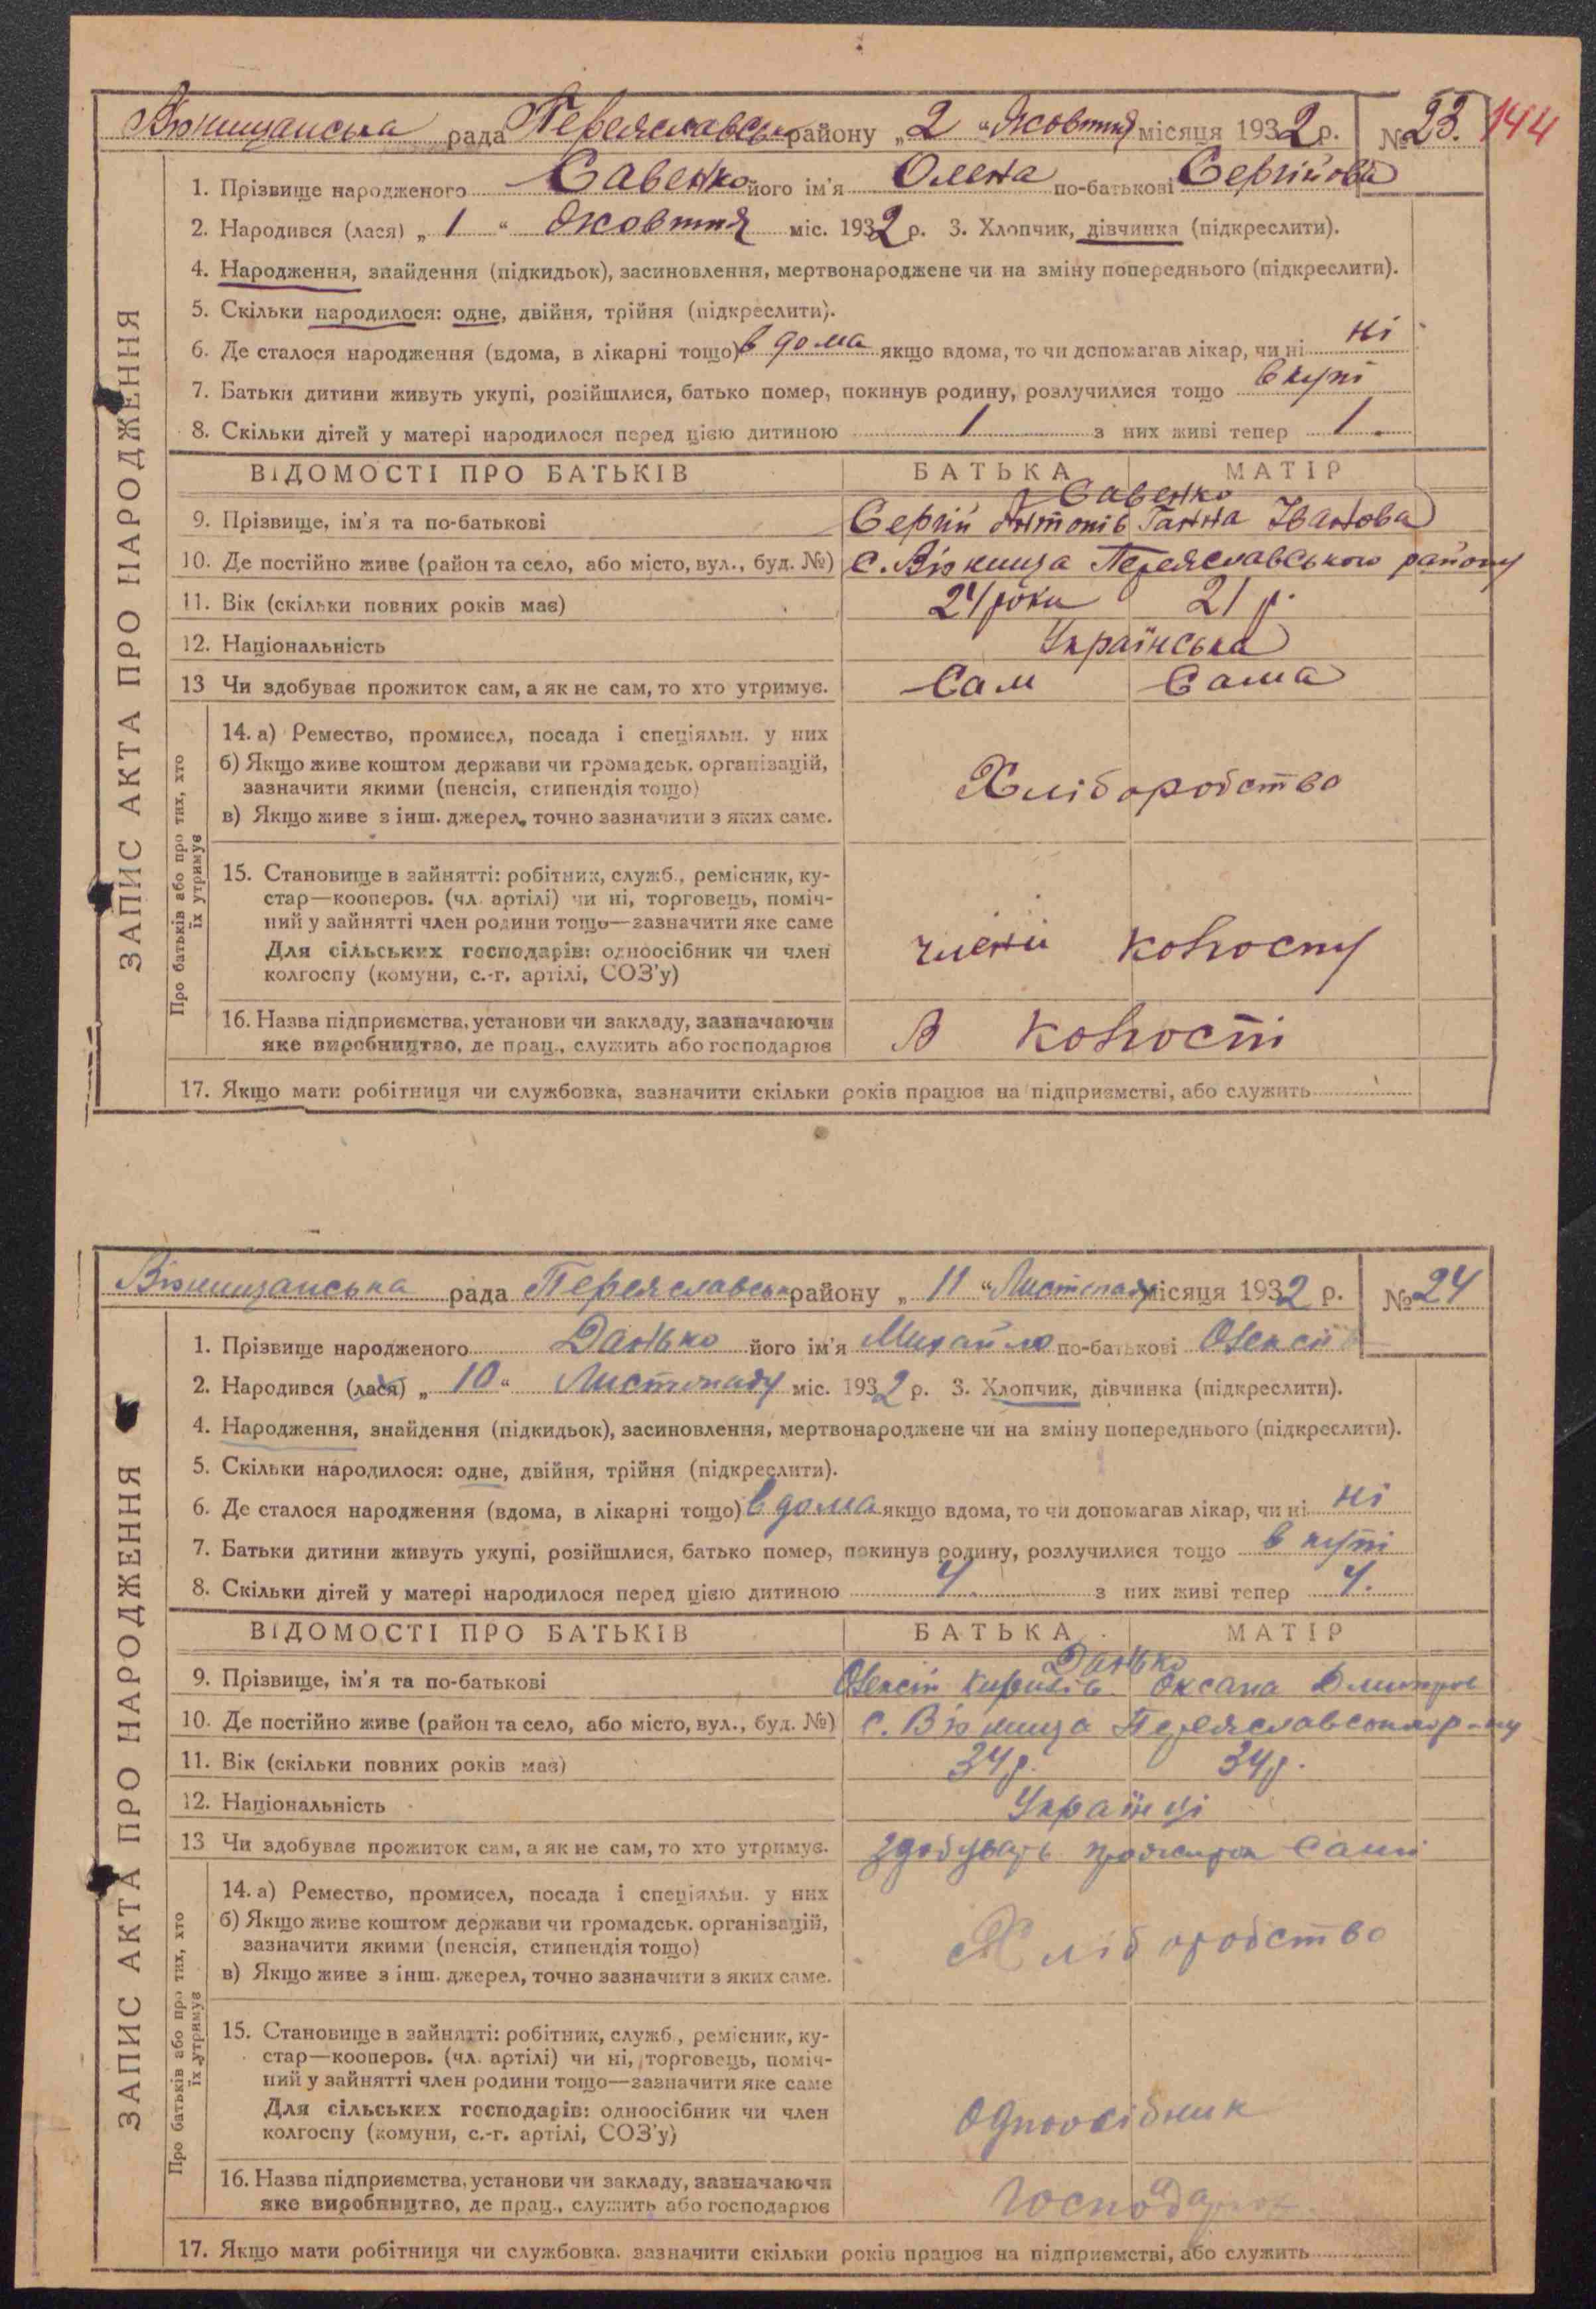 Вюнищанська рада Переяславськ району „ 2 “ Жовтня місяця 1932 р. № 23. 144
1. Прізвище народженого Савенко його ім'я Олена по-батькові Сергійова
2. Народився (лася) „ 1 “ Жовтня міс. 1932 р. 3. Хлопчик, дівчинка (підкреслити).
4. Народження, знайдення (підкидьок), засиновлення, мертвонароджене чи на зміну попереднього (підкреслити).
5. Скільки народилося: одне, двійня, трійня (підкреслити).
6. Де сталося народження (вдома, в лікарні тощо) в дома якщо вдома, то чи допомагав лікар, чи ні ні
7. Батьки дитини живуть укупі, розійшлися, батько помер, покинув родину, розлучилися тощо вкупі
8. Скільки дітей у матері народилося перед цією дитиною 1 з них живі тепер 1.
ВІДОМОСТІ ПРО БАТЬКІВ БАТЬКА МАТІР
Савенко
9. Прізвище, ім'я та по-батькові Сергій Антонів Ганна Іванова
10. Де постійно живе (район та село, або місто, вул., буд. №) с. Вюнища Переяславського району
11. Вік (скільки повних років має) 24 роки 21 р.
12. Національність Українська
13 Чи здобуває прожиток сам, а як не сам, то хто утримує. Сам Сама
14. а) Ремество, промисел, посада і спеціяльн. у них
б) Якщо живе коштом держави чи громадськ. організацій,
зазначити якими (пенсія, стипендія тощо) Хліборобство
в) Якщо живе з інш. джерел, точно зазначити з яких саме.
15. Становище в зайнятті: робітник, служб., ремісник, ку-
стар—кооперов. (чл. артілі) чи ні, торговець, поміч-
ний у зайнятті член родини тощо—зазначити яке саме
Для сільських господарів: одноосібник чи член члени колгоспу
колгоспу (комуни, с.-г. артілі, СОЗ'у)
16. Назва підприємства, установи чи закладу, зазначаючи
яке виробництво, де прац., служить або господарює В колгоспі
17. Якщо мати робітниця чи службовка, зазначити скільки років працює на підприємстві, або служить
ЗАПИС АКТА ПРО НАРОДЖЕННЯ
Про батьків або про тих, хто
їх утримує
Вюнищанська рада Переяславськ району „ 11 “ Листопаду місяця 1932 р. № 24
1. Прізвище народженого Данько його ім'я Михайло по-батькові Олексіїв
2. Народився (лася) „ 10 “ Листопаду міс. 1932 р. 3. Хлопчик, дівчинка (підкреслити).
4. Народження, знайдення (підкидьок), засиновлення, мертвонароджене чи на зміну попереднього (підкреслити).
5. Скільки народилося: одне, двійня, трійня (підкреслити).
6. Де сталося народження (вдома, в лікарні тощо) в дома якщо вдома, то чи допомагав лікар, чи ні ні
7. Батьки дитини живуть укупі, розійшлися, батько помер, покинув родину, розлучилися тощо в купі
8. Скільки дітей у матері народилося перед цією дитиною 4. з них живі тепер 4.
ВІДОМОСТІ ПРО БАТЬКІВ БАТЬКА МАТІР
Данько
9. Прізвище, ім'я та по-батькові Олексій Кирилів Оксана Дмитров
10. Де постійно живе (район та село, або місто, вул., буд. №) с. Вюнища Переяславського р-ну
11. Вік (скільки повних років має) 34 р. 34 р.
12. Національність Українці
13 Чи здобуває прожиток сам, а як не сам, то хто утримує. здобувать прожиток самі
14. а) Ремество, промисел, посада і спеціяльн. у них
б) Якщо живе коштом держави чи громадськ. організацій,
зазначити якими (пенсія, стипендія тощо) Хліборобство
в) Якщо живе з інш. джерел, точно зазначити з яких саме.
15. Становище в зайнятті: робітник, служб., ремісник, ку-
стар—кооперов. (чл. артілі) чи ні, торговець, поміч-
ний у зайнятті член родини тощо—зазначити яке саме
Для сільських господарів: одноосібник чи член Одноосібник
колгоспу (комуни, с.-г. артілі, СОЗ'у)
16. Назва підприємства, установи чи закладу, зазначаючи
яке виробництво, де прац., служить або господарює
17. Якщо мати робітниця чи службовка. зазначити скільки років працює на підприємстві, або служить
ЗАПИС АКТА ПРО НАРОДЖЕННЯ
Про батьків або про тих, хто
їх утримує